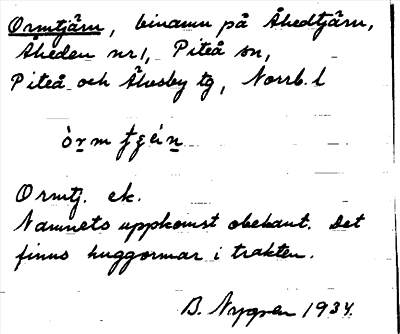 Ormtjärn, binamn på Åhedtjärn,
Åheden nr 1, Piteå sn,
Piteå och Älvsby tg, Norrb. l
Ormtj. ek.
Namnets uppkomst obekant. Det
finns huggormar i trakten.
B. Nygren 1934.